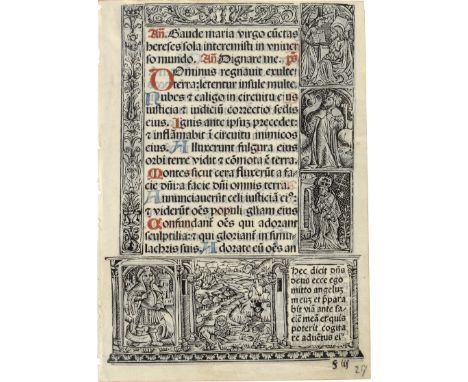 Añ. Gaude maria virgo cũctas
hereses sola interemisti in vniuer
so mundo. Añ. Dignare me. p̃s
Dominus regnauit exulte
terra: letentur insule multe.
Nubes ⁊ caligo in circuitu eius
iusticia ⁊ iudiciũ correctio sedis
eius. Ignis ante ipsuz precedet:
⁊ inflãmabit ĩ circuitu inimicos
eius. Alluxerunt fulgura eius
orbi terre vidit ⁊ cõmota ẽ terra.
Montes sicut cera fluxerũt a fa
cie dñi: a facie dñi omnis terra.
Annunciauerũt celi iusticiã eiꝰ:
⁊ viderũt oẽs populi gliam eius
Confundantˀ oẽs qui adorant
sculptilia: ⁊ qui gloriantˀ in simu
lachris suis. Adorate eũ oẽs an
Hec dicit dñs
deus ecce ego
mitto angeluz
meuz et p̃para
bit viã ante fa
ciẽ meã et quis
poterit cogita
re aduẽtus eiꝰ
g iij
29